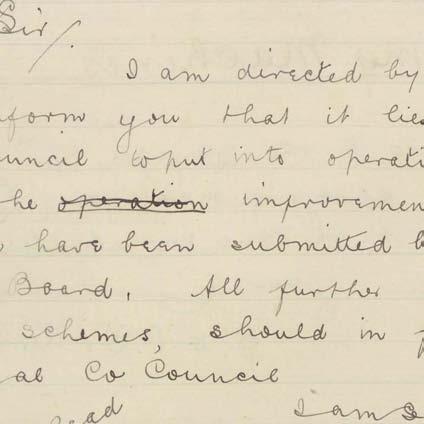 Sir/.
I am directed by
nform you that it lies
ouncil to put into operati
he ~~operation~~ improvemen
have been submitted b
Board. All further
schemes, should in p
al Co Council
ad I am S